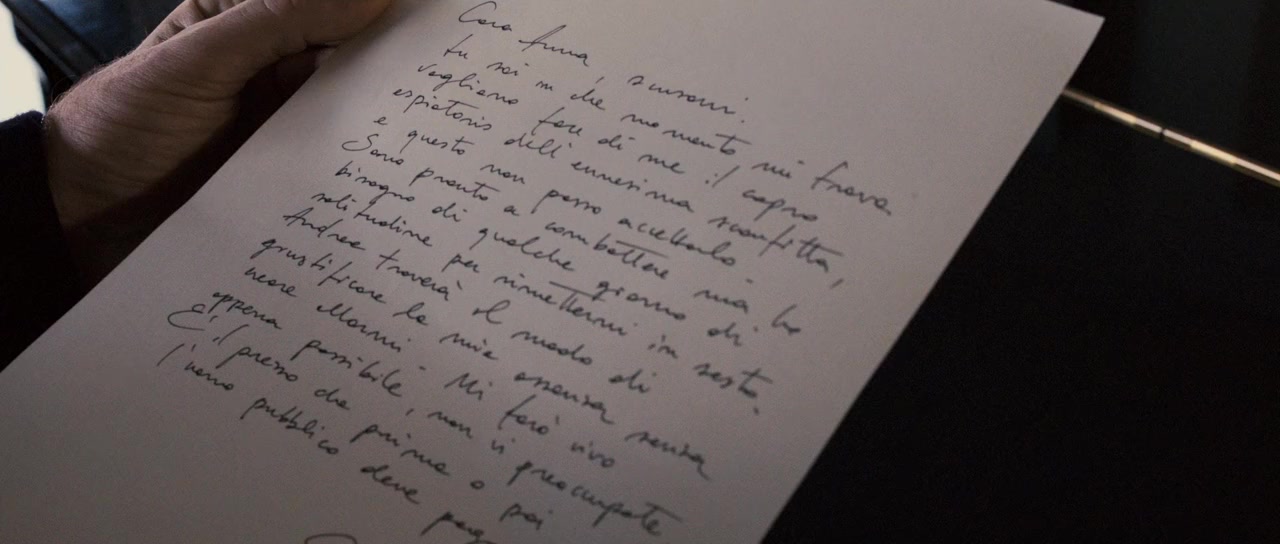 Cara Anna, scusami.
tu sai in che momento mi trovo.
vogliono fare di me il capro
espiatorio dell'ennesima sconfitta,
e questo non posso accettarlo.
Sono pronto a combattere ma ho
bisogno di qualche giorno di
solitudine per rimettermi in sesto.
Andrea troverà il modo di
giustificare la mia assenza senza
creare allarmi. Mi farò vivo
appena possibile, non vi preoccupate
E' il prezzo che prima o poi
l'uomo pubblico deve pag